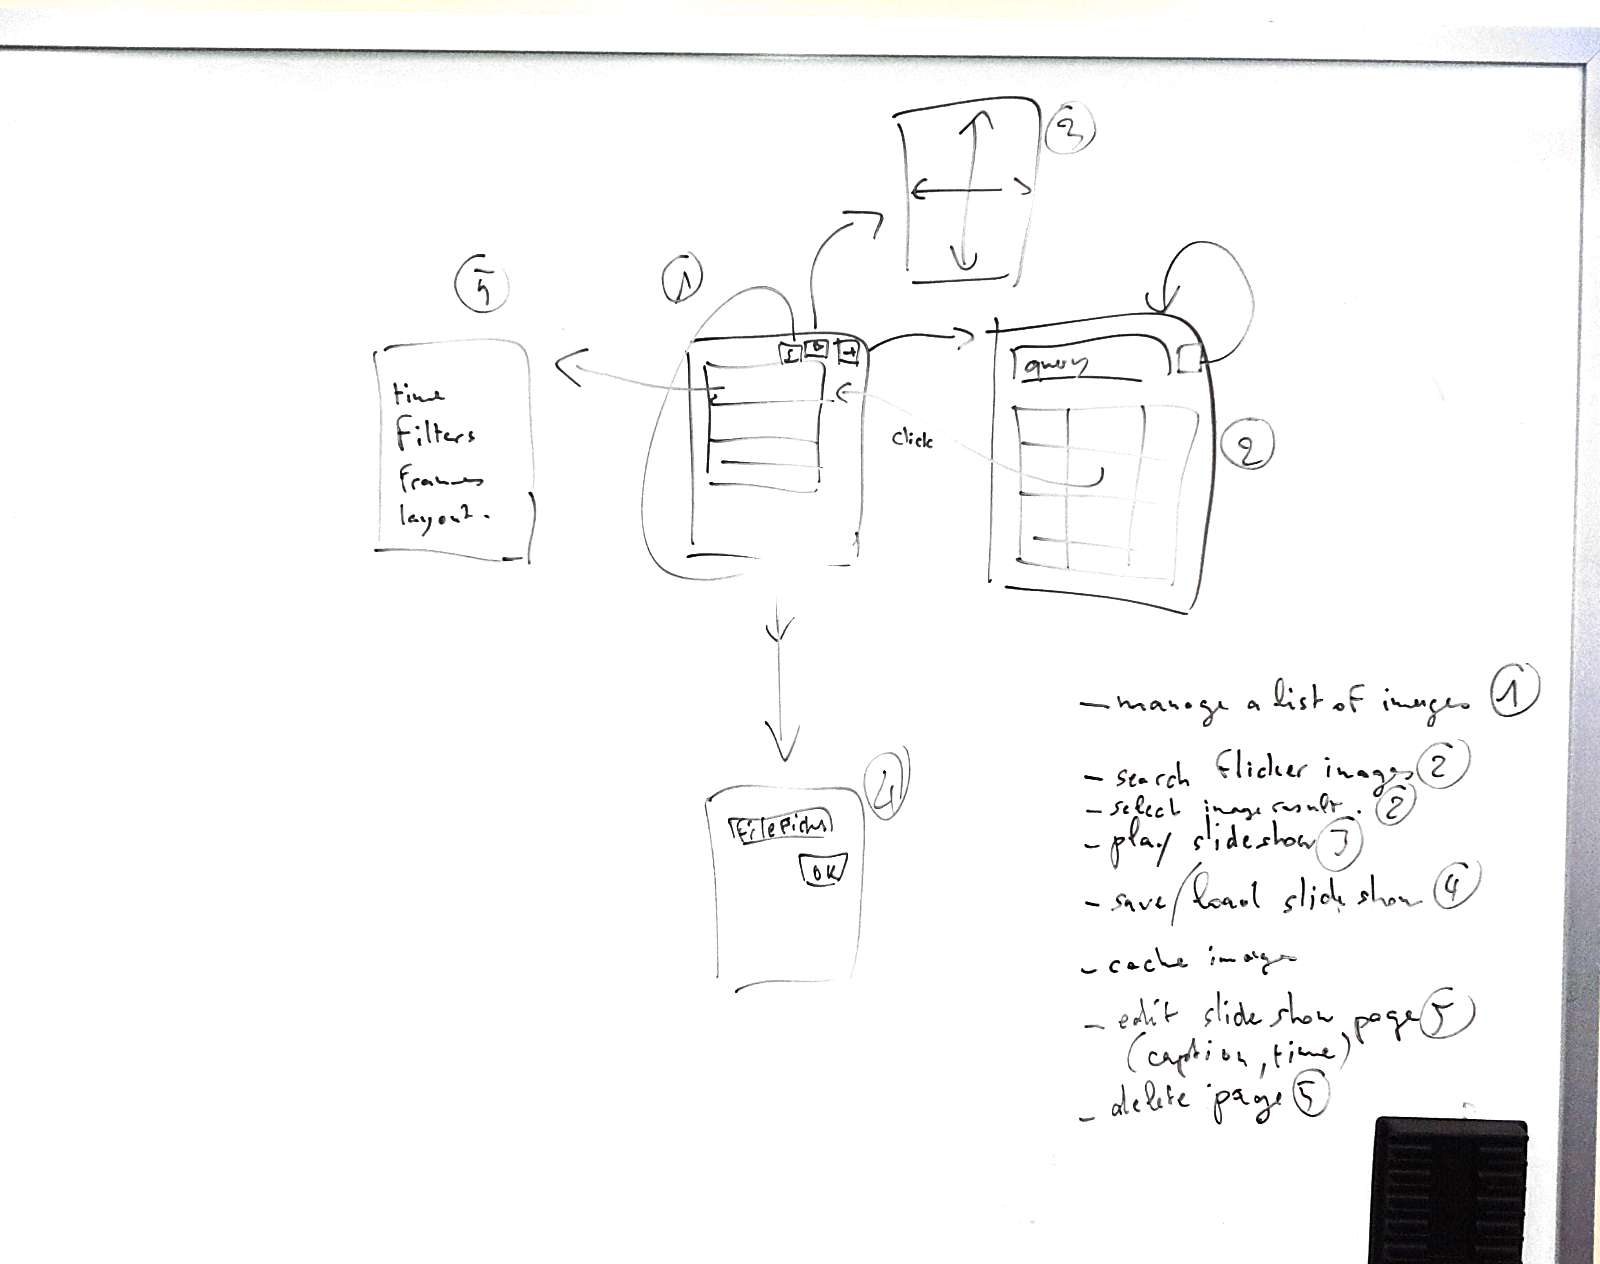 3
5
1
query
time
Filters
Frames
layout.
click
2
- manage a list of images 1
- search Flicker images 2
- select image result. 2
- play slideshow 3
4
File Picker
OK
- save/load slide show 4
- cache images
- edit slide show page 5
(caption, time)
- delete page 5